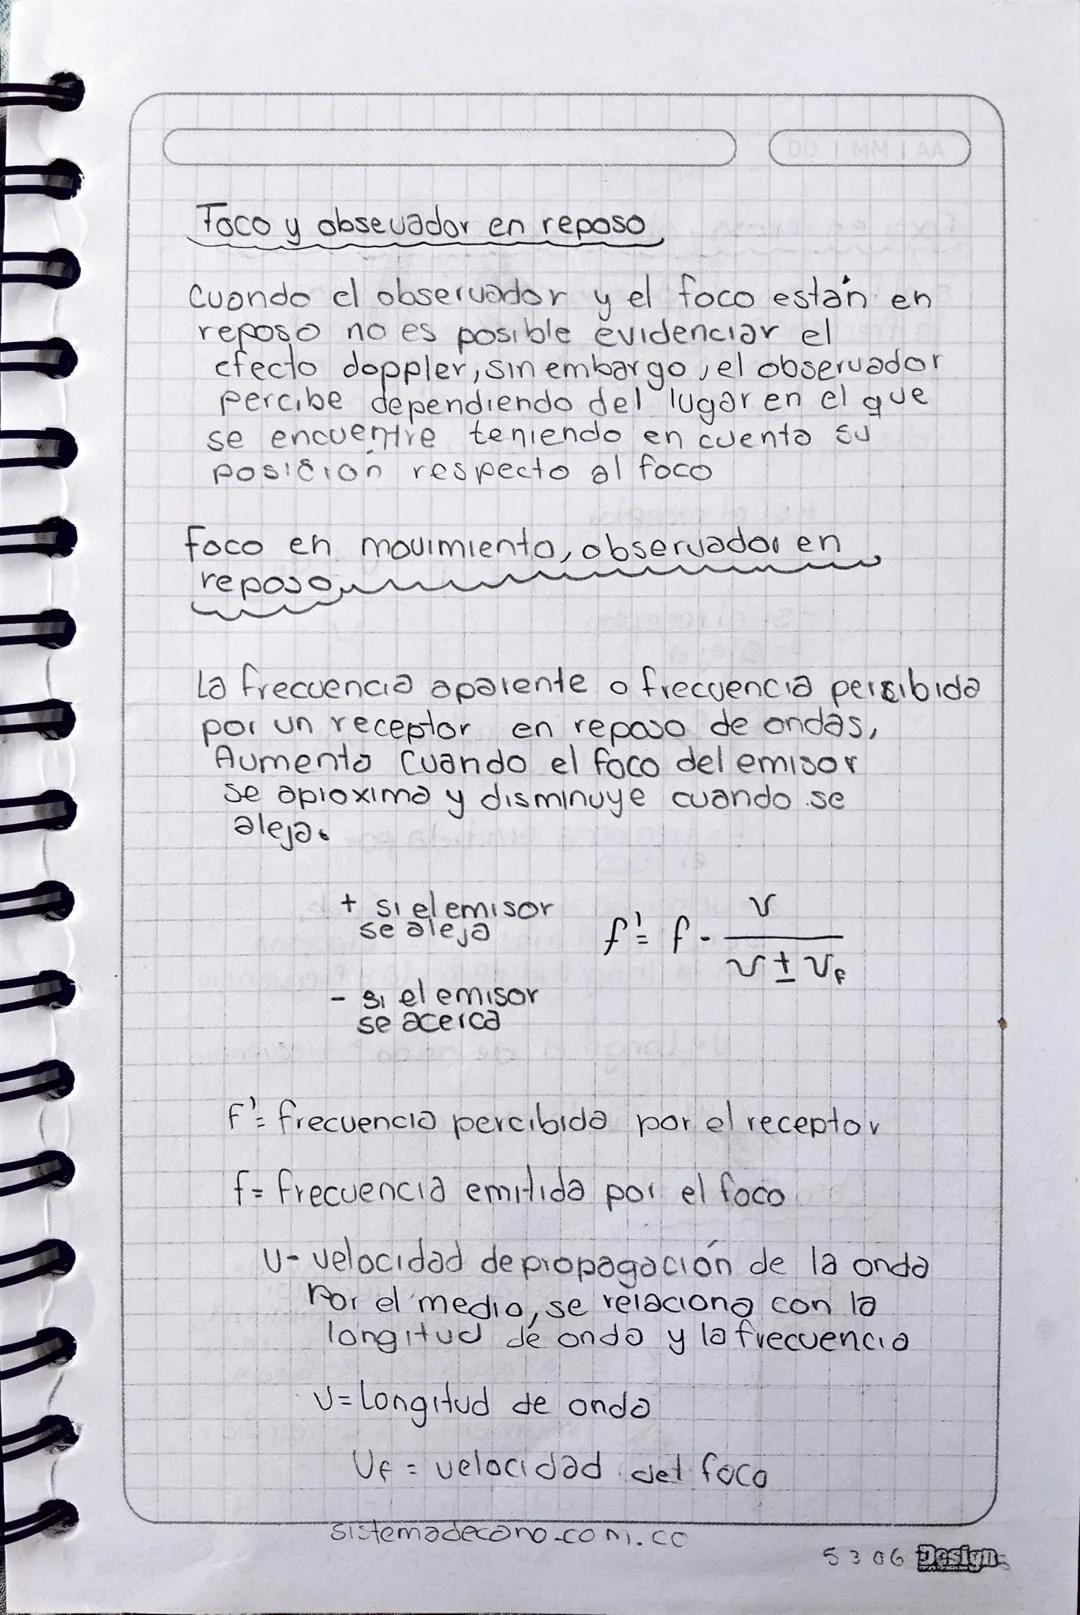 AA | MM | DD
Foco y obseuador en reposo
Cuando el observador y el foco están en
reposo no es posible evidenciar el
efecto doppler, sin embargo, el observador
percibe dependiendo del lugar en el que
se encuentre teniendo en cuenta su
posición respecto al foco
Foco en movimiento, observador en
reposo
La frecuencia aparente o frecuencia percibida
por un receptor en reposo de ondas,
Aumenta Cuando el foco del emisor
se aproxima y disminuye cuando se
aleja.
+ si el emisor
se aleja
f' = f · v / (v ± vf)
- si el emisor
se acerca
F' = frecuencia percibida por el receptor
f = frecuencia emitida por el foco
V- velocidad de propagación de la onda
Por el medio, se relaciona con la
longitud de onda y la frecuencia
V = Longitud de onda
Vf = velocidad del foco
sistemadecano.com.co
5306 Design